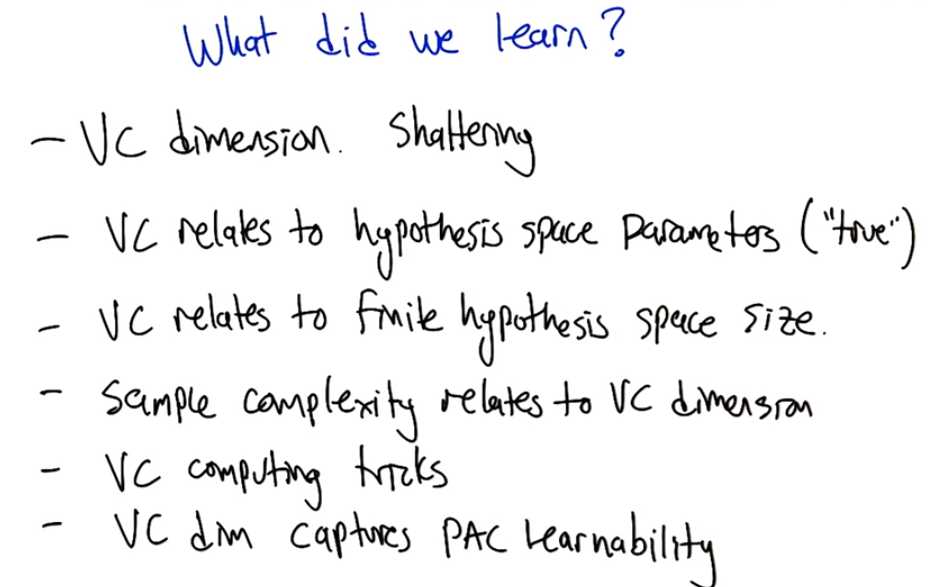 What did we learn?
- VC dimension. Shattering
- VC relates to hypothesis space parameters ("true")
- VC relates to finite hypothesis space size.
- Sample complexity relates to VC dimension
- VC computing tricks
- VC dim captures PAC learnability